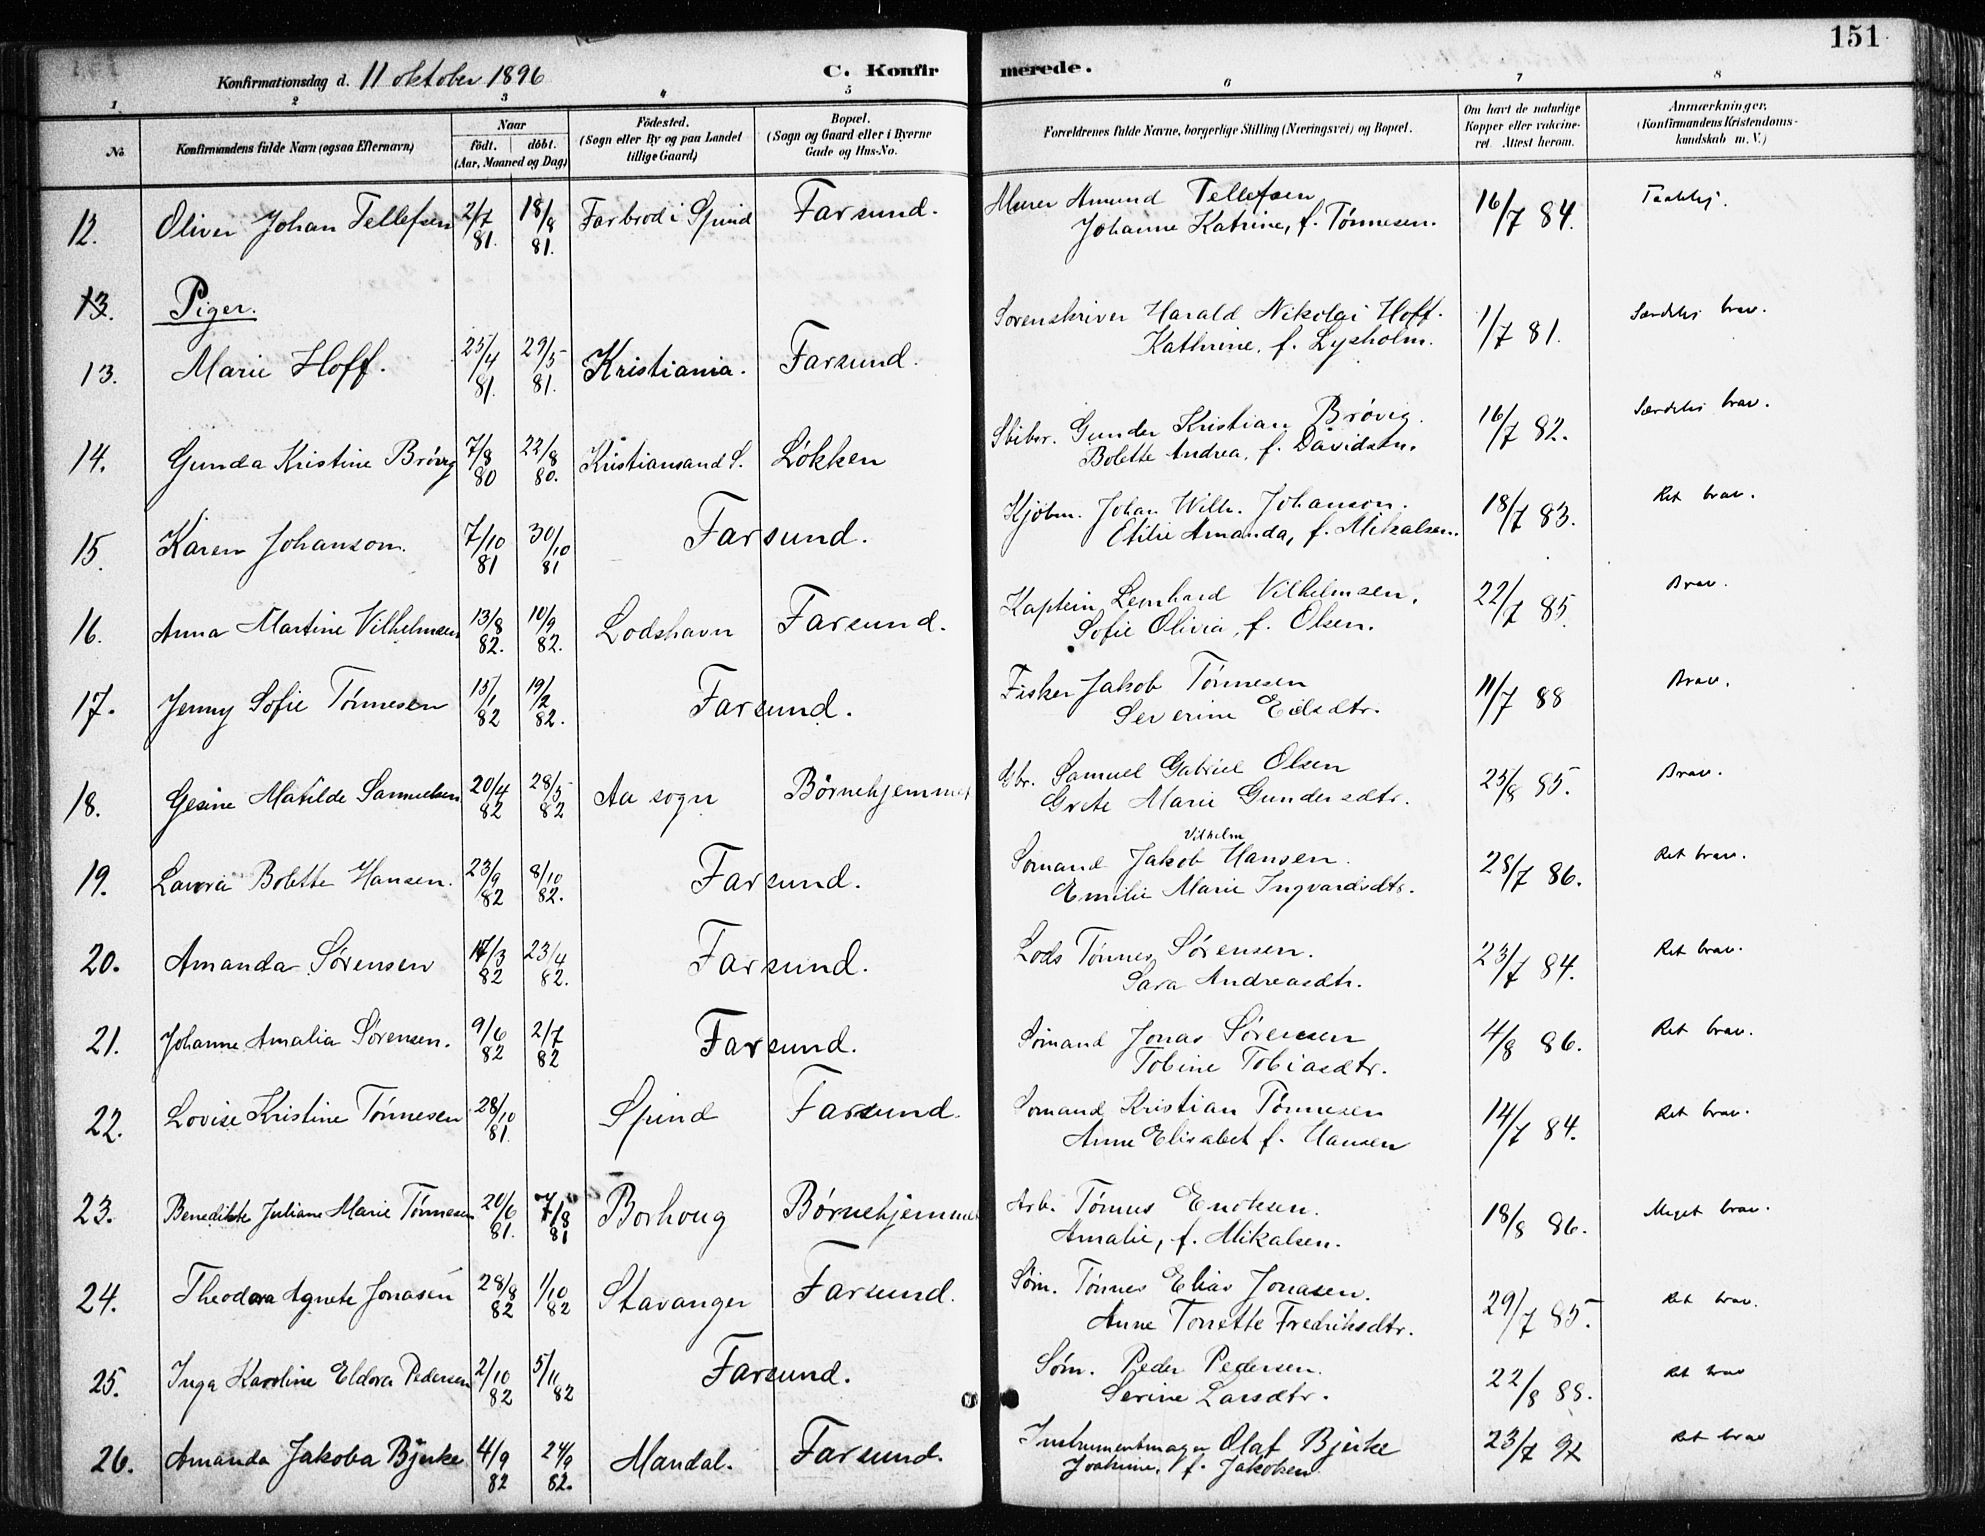 151
Konfirmationsdag d. 11 oktober 1896 C. Konfirmerede.
1 2 3 4 5 6 7 8
No. Konfirmandens fulde Navn (ogsaa Efternavn) Naar født. døbt. (Aar, Maaned og Dag) Födested. (Sogn eller By og paa Landet tillige Gaard) Bopæl. (Sogn og Gaard eller i Byerne Gade og Hus-No. Forældrenes fulde Navne, borgerlige Stilling (Næringsvei) og Bopæl. Om havt de naturlige Kopper eller vakcineret. Attest herom. Anmærkninger. (Konfirmandens Kristendomskundskab m. V.)
12. Oliver Johan Tellefsen 2/7 81. 18/8 81. Farbrod i Spind Farsund. Murer Amund Tellefsen 16/7 84. Taalelig.
Johanne Katrine, f. Tønnesen.
13. Piger.
13. Marie Hoff. 25/4 81. 29/5 81. Kristiania. Farsund. Sorenskriver Harald Nikolai Hoff. 1/7 81. Særdeles brav.
Kathrine, f. Lysholm.
14. Gunda Kristine Brøvig 7/8 80 22/8 80. Kristiansand S. Løkken Skibsr. Gunder Kristian Brøvig. 16/7 82. Særdeles brav.
Bolette Andrea, f. Davidsen.
15. Karen Johanson. 7/10 81 30/10 81 Farsund. Kjøbm. Johan Wilh. Johanson. 18/7 83. Ret brav.
Otilie Amanda, f. Mikalsen.
16. Anna Martine Vilhelmsen 13/8 82. 10/9 82. Lodshavn Farsund. Kaptein Lernhard Vilhelmsen. 22/7 85. Brav.
Sofie Olivia, f. Olsen.
17. Jenny Sofie Tønnesen 15/1 82 19/2 82. Farsund. Fisker Jakob Tønnesen 11/7 88 Brav.
Severine Eilsdtr.
18. Gesine Matilde Samuelsen 20/4 82 28/5 82 Aa sogn Børnehjemmet Gbr. Samuel Gabriel Olsen 23/8 85. Brav.
Grete Marie Gundersdtr.
19. Lavra Bolette Hansen. 23/9 82 8/10 82. Farsund. Sømand Jakob Vilhelm Hansen. 28/7 86. Ret brav.
Emilie Marie Ingvardsdtr.
20. Amanda Sørensen 17/3 82 23/4 82. Farsund. Lods Tønnes Sørensen. 23/7 84. Ret brav.
Sara Andreasdtr.
21. Johanne Amalia Sørensen. 9/6 82 2/7 82 Farsund. Sømand Jonas Sørensen 4/8 86. Ret brav.
Tobine Tobiasdtr.
22. Lovise Kristine Tønnesen 28/10 81. Spind Farsund. Sømand Kristian Tønnesen 14/7 84. Ret brav.
Anne Elisabet f. Hansen
23. Benedikte Juliane Marie Tønnesen 20/6 81. 7/8 81 Borhoug Børnehjemmet Arb. Tønnes Enoksen. 18/8 86. Meget brav.
Amalie, f. Mikalsen.
24. Theodora Agnete Jonasen 28/8 82 1/10 82 Stavanger Farsund. Søm. Tønnes Elias Jonasen. 29/7 85. Ret brav.
Anne Tonette Fredriksdtr.
25. Inga Karoline Eldora Pedersen 2/10 82 5/11 82 Farsund. Søm. Peder Pedersen. 22/8 88. Ret brav
Serine Larsdtr.
26. Amanda Jakoba Bjerke 4/9 82 24/9 82. Mandal. Farsund. Instrumentmager Olaf Bjerke 23/7 92 Ret brav
Joakime, f. Jakobsen